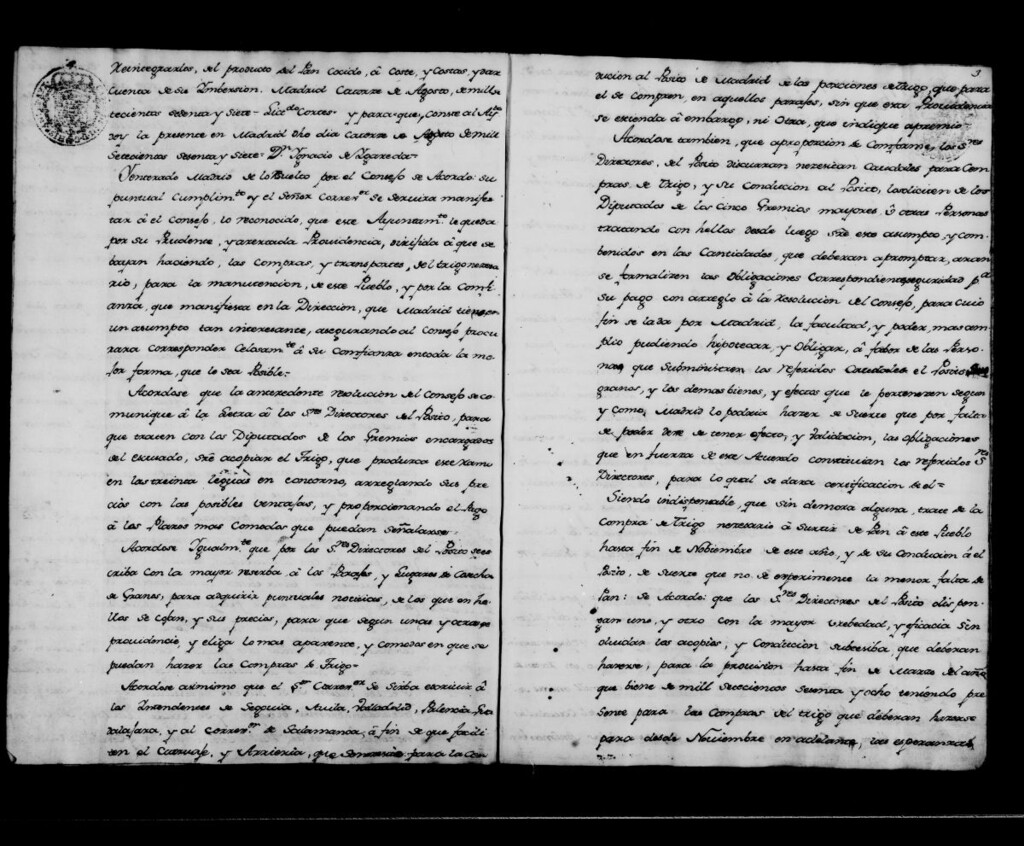 Reintegrarlos, del producto del Pan cocido, â coste, y costas, y dar
cuenta de su Ymbersion. Madrid Catorce de Agosto, de mill se-
tecientos setenta y siete = Lizdo Cortes = y para que, conste al Ayto
doy la presente en Madrid dho dia catorce de Agosto de mill
Setecientos setenta y siete = Dn Ygnacio de Ygareda =
Ynterado Madrid de lo Resuelto por el Consejo se Acordo: su
puntual Cumplimto y el Señor Correxor se servira manifes-
tar â el Consejo, lo reconocido, que este Ayuntamto le queda
por su Prudente, y acertada Providencia, dirijida â que se
bayan haciendo, las compras, y transportes, del trigo necesa-
rio, para la manutencion, de este Pueblo, y por la Comfi-
anza, que manifiesta en la Direcion, que Madrid tiene en
un asumpto tan interesante, asegurando al Consejo procu-
rara corresponder Celosamte â su Comfianza en toda la me-
jor forma, que le sea Posible =
Acordose que la antecedente resolucion del Consejo se co-
munique â la Letra â los Sres Directores del Posito, para
que traten con los Diputados de los Gremios encargados
del escusado, sre acopiar el Trigo, que produzca este Ramo
en las treinta leguas en contorno, arreglando sus pre-
cios con las posibles ventajas, y proporcionando el Pago
â los Plazos mas Comodos que puedan señalarse.
Acordose Ygualmte que por los Sres Directores del Posito se es-
criba con la mayor reserba, â los Parajes, y Lugares de Cosecha
de Granos, para adquirir puntuales noticias, de los que en he-
llos se cojan, y sus precios, para que segun unas y otras se
providencie, y elija lo mas aparente, y comodo en que se
puedan hazer las Compras de Trigo =
Acordose asimismo que el Sor Correxor se sirba escrivir â
los Yntendentes de Segovia, Avila, Valladolid, Palencia, Gua-
dalajara, y al correxor de Salamanca, â fin de que facili-
ten el Carruaje, y Arrieria, que para la con-
3
ducion al Posito de Madrid de las porciones de Trigo, que para
el se Compren, en aquellos parajes, sin que esta Providencia
se estienda â embargo, ni otra, que indique apremio =
Acordose tambien, que a proporcion de Comfarme, los Sres
Directores, del Posito discurran nezesitan Caudales para Com-
pras de Trigo, y su Conducion al Posito, los soliciten de los
Diputados de los cinco Gremios mayores, û otras Personas
tratando con hellos desde luego sre este asumpto, y com-
benidos en las Cantidades, que deberan aprontar,
se formalizen las Obligaciones Correspondientes seguridad pa
su pago con arreglo â la Resolucion del Consejo, para cuio
fin se la da por Madrid, la facultad, y poder, mas cum-
plio pudiendo hipotecar, y Obligar, â fabor de las Perso-
nas que Subministren los referidos Caudales el Posito sus
granos, y los demas bienes, y efectos que le pertenecen segun
y como, Madrid lo podria hazer de suerte que por falta
de poder deje de tener efecto, y Validacion, las obligaciones
que en fuerza de este Acuerdo constituian los referidos Sres
Directores, para lo qual se dara certificacion de el =
Siendo indispensable, que sin demora alguna, trate de la
Compra de Trigo necesario â surtir de Pan â este Pueblo
hasta fin de Nobiembre de este año, y de su Conducion â el
Posito, de suerte que no se experimente la menor falta de
Pan: se Acordo: que los Sres Directores del Posito dispon-
gan uno, y otro con la mayor brebedad, y eficacia sin
olvidar los acopios, y Condicion subcesiba, que deberan
hacerse, para la provision hasta fin de Marzo del año
que biene de mill setecientos setenta y ocho teniendo pre-
sente para las Compras del trigo que deberan hacerse
para desde Noviembre en adelante, las esperanzas